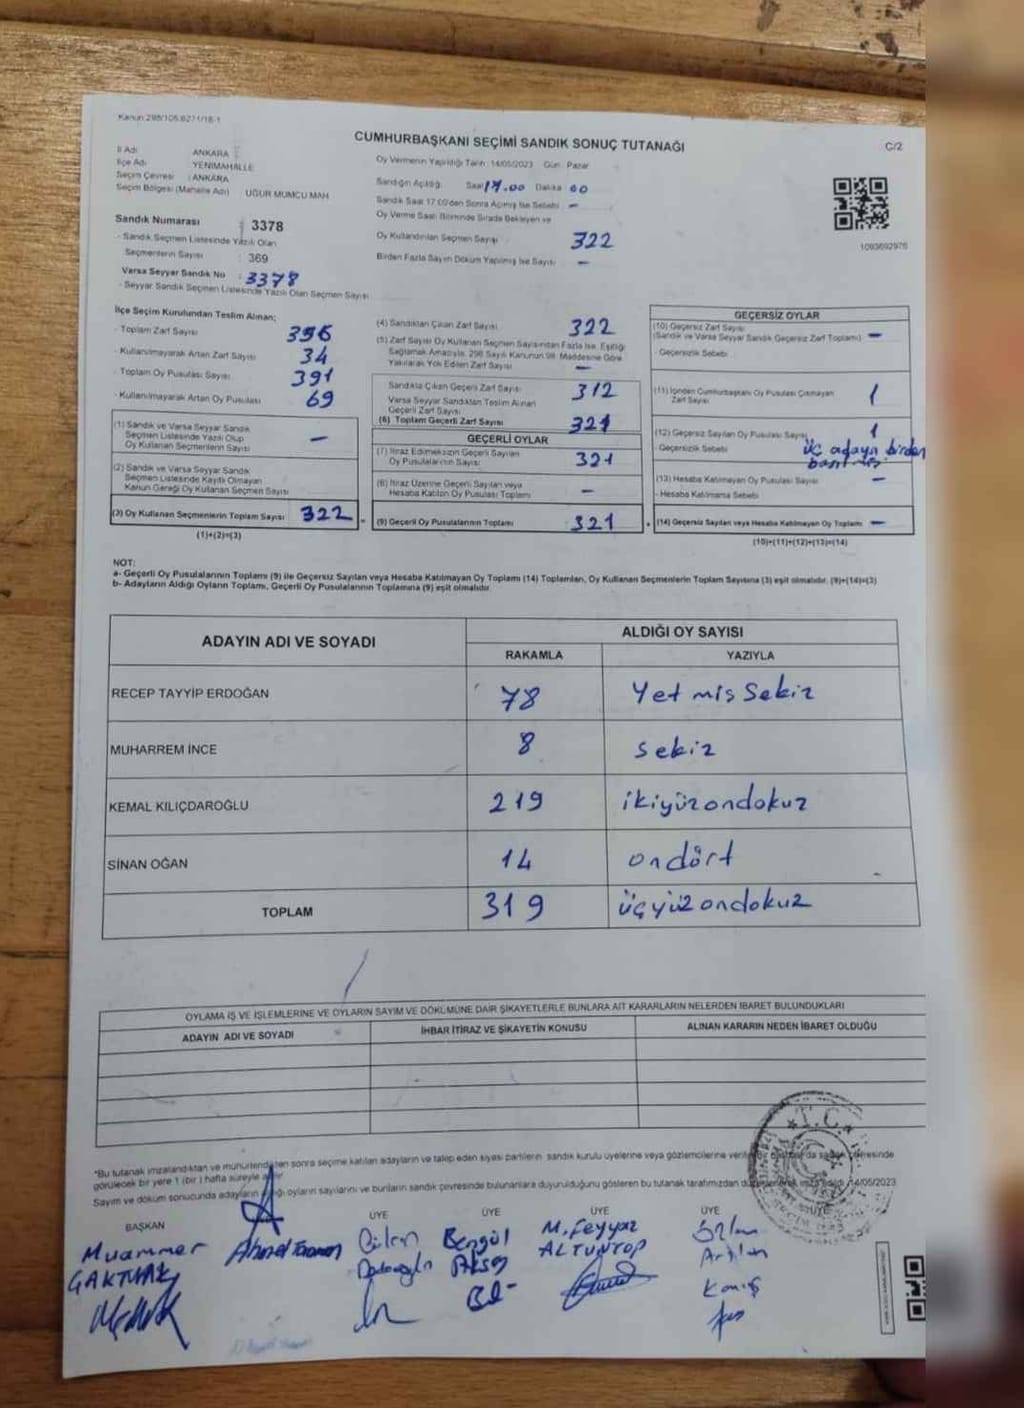 Kanun:298/105,6271/18-1
CUMHURBAŞKANI SEÇİMİ SANDIK SONUÇ TUTANAĞI
C/2
İl Adı ANKARA
İlçe Adı YENİMAHALLE
Seçim Çevresi : ANKARA
Seçim Bölgesi (Mahalle Adı) UĞUR MUMCU MAH
Sandık Numarası 3378
- Sandık Seçmen Listesinde Yazılı Olan
Seçmenlerin Sayısı : 369
Varsa Seyyar Sandık No : 3378
- Seyyar Sandık Seçmen Listesinde Yazılı Olan Seçmen Sayısı
Oy Vermenin Yapıldığı Tarih: 14/05/2023 Gün: Pazar
Sandığın Açıldığı Saat 17.00 Dakika 00
Sandık Saat 17.00'den Sonra Açılmış İse Sebebi -
Oy Verme Saati Bitiminde Sırada Bekleyen ve
Oy Kullandırılan Seçmen Sayısı 322
Birden Fazla Sayım Döküm Yapılmış İse Sayısı -
1093692976
İlçe Seçim Kurulundan Teslim Alınan;
- Toplam Zarf Sayısı 356
- Kullanılmayarak Artan Zarf Sayısı 34
- Toplam Oy Pusulası Sayısı 391
- Kullanılmayarak Artan Oy Pusulası 69
(1) Sandık ve Varsa Seyyar Sandık
Seçmen Listesinde Yazılı Olup
Oy Kullanan Seçmenlerin Sayısı -
(2) Sandık ve Varsa Seyyar Sandık
Seçmen Listesinde Kayıtlı Olmayan
Kanun Gereği Oy Kullanan Seçmen Sayısı
(3) Oy Kullanan Seçmenlerin Toplam Sayısı 322
(1)+(2)=(3)
(4) Sandıktan Çıkan Zarf Sayısı 322
(5) Zarf Sayısı Oy Kullanan Seçmen Sayısından Fazla İse, Eşitliği
Sağlamak Amacıyla, 298 Sayılı Kanunun 98. Maddesine Göre
Yakılarak Yok Edilen Zarf Sayısı -
Sandıkta Çıkan Geçerli Zarf Sayısı 312
Varsa Seyyar Sandıktan Teslim Alınan
Geçerli Zarf Sayısı
(6) Toplam Geçerli Zarf Sayısı 321
GEÇERLİ OYLAR
(7) İtiraz Edilmeksizin Geçerli Sayılan
Oy Pusulalarının Sayısı 321
(8) İtiraz Üzerine Geçerli Sayılan veya
Hesaba Katılan Oy Pusulası Toplamı -
(9) Geçerli Oy Pusulalarının Toplamı 321
GEÇERSİZ OYLAR
(10) Geçersiz Zarf Sayısı
(Sandık ve Varsa Seyyar Sandık Geçersiz Zarf Toplamı) -
- Geçersizlik Sebebi
(11) İçinden Cumhurbaşkanı Oy Pusulası Çıkmayan
Zarf Sayısı 1
(12) Geçersiz Sayılan Oy Pusulası Sayısı 1
- Geçersizlik Sebebi üç adaya birden
(13) Hesaba Katılmayan Oy Pusulası Sayısı -
- Hesaba Katılmama Sebebi
(14) Geçersiz Sayılan veya Hesaba Katılmayan Oy Toplamı -
(10)+(11)+(12)+(13)=(14)
NOT:
a- Geçerli Oy Pusulalarının Toplamı (9) ile Geçersiz Sayılan veya Hesaba Katılmayan Oy Toplamı (14) Toplamları, Oy Kullanan Seçmenlerin Toplam Sayısına (3) eşit olmalıdır. (9)+(14)=(3)
b- Adayların Aldığı Oyların Toplamı, Geçerli Oy Pusulalarının Toplamına (9) eşit olmalıdır.
ADAYIN ADI VE SOYADI ALDIĞI OY SAYISI
RAKAMLA YAZIYLA
RECEP TAYYİP ERDOĞAN 78 Yetmiş Sekiz
MUHARREM İNCE 8 sekiz
KEMAL KILIÇDAROĞLU 219 ikiyüzondokuz
SİNAN OĞAN 14 ondört
TOPLAM 319 üçyüzondokuz
OYLAMA İŞ VE İŞLEMLERİNE VE OYLARIN SAYIM VE DÖKÜMÜNE DAİR ŞİKAYETLERLE BUNLARA AİT KARARLARIN NELERDEN İBARET BULUNDUKLARI
ADAYIN ADI VE SOYADI İHBAR İTİRAZ VE ŞİKAYETİN KONUSU ALINAN KARARIN NEDEN İBARET OLDUĞU
*Bu tutanak imzalandıktan ve mühürlendikten sonra seçime katılan adayların ve talep eden siyasi partilerin sandık kurulu üyelerine veya gözlemcilerine sandık çevresinde
görülecek bir yere 1 (bir) hafta süreyle
Sayım ve döküm sonucunda adayların aldığı oyların sayılarını ve bunların sandık çevresinde bulunanlara duyurulduğunu gösteren bu tutanak tarafımızdan 14/05/2023
BAŞKAN ÜYE ÜYE ÜYE ÜYE
Muammer Ahmet Bengül M. Feyyaz
ALTUNTOP
T.C.